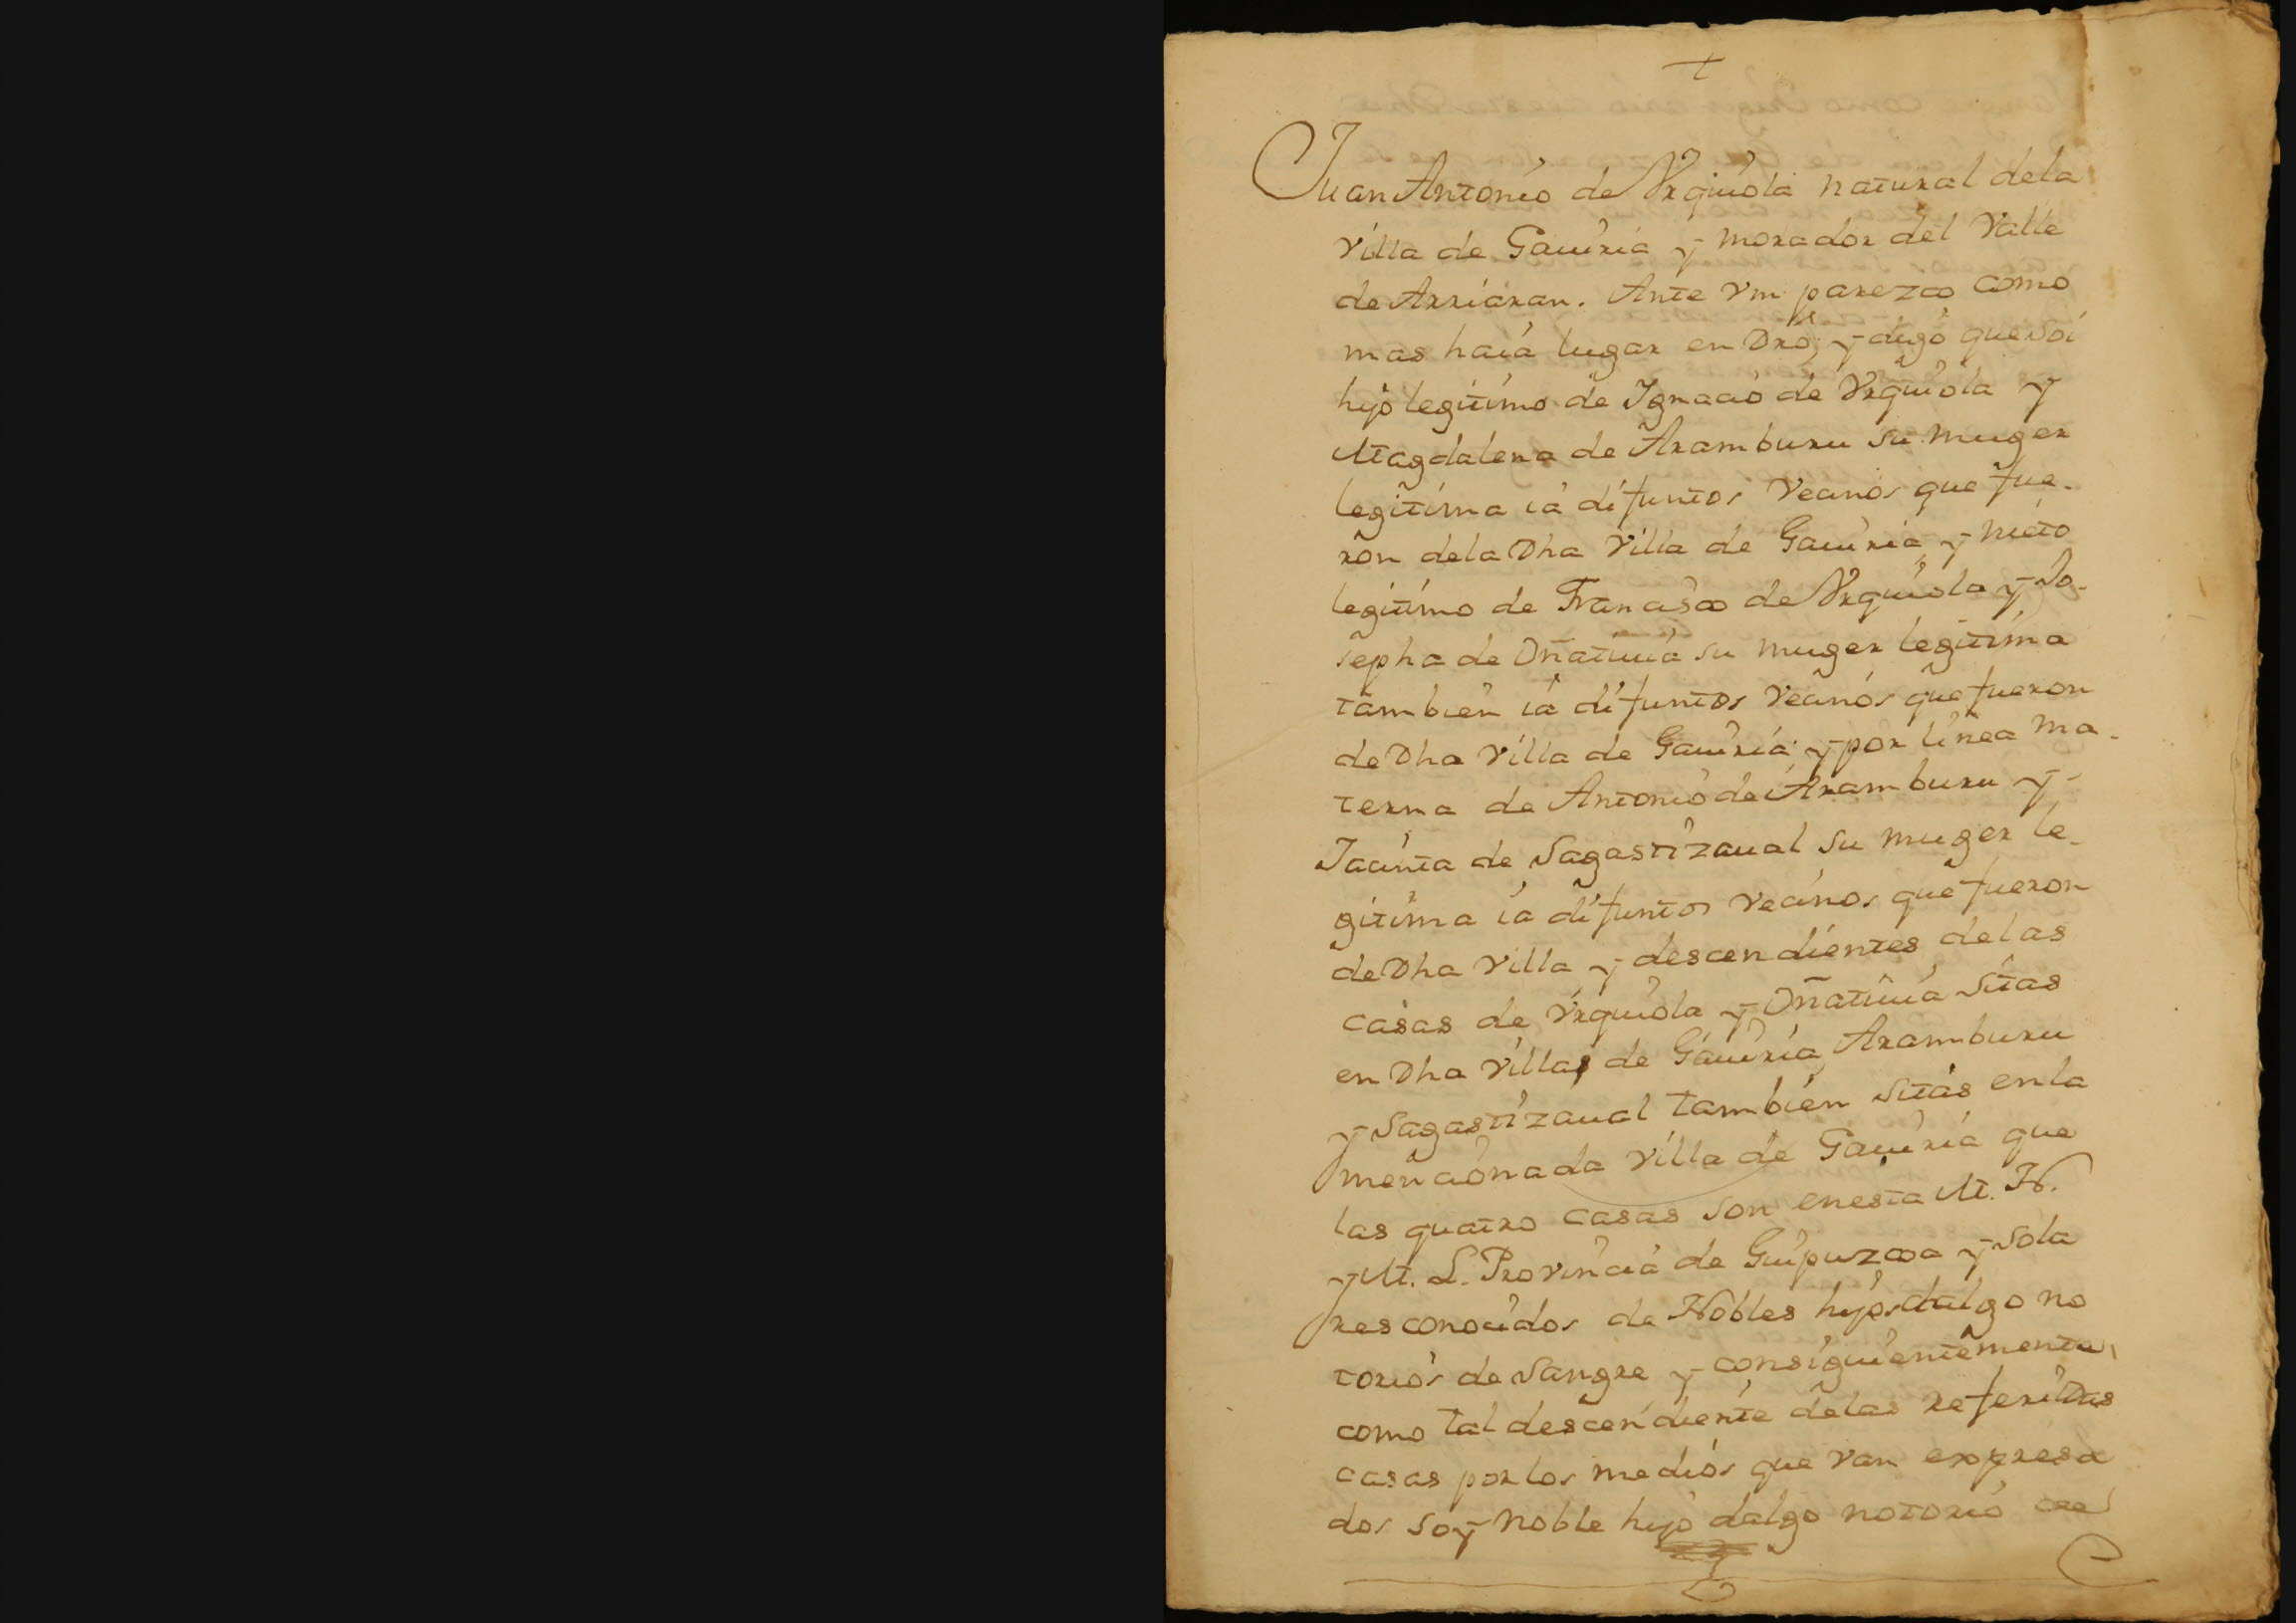 +
Juan Antonio de Vrquiola natural dela
Villa de Gauiria y morador del Valle
de Arriaran. Ante Vm parezco como
mas haia lugar en Dro; y digo que soi
hijo legitimo de Ignacio de Vrquiola y
Magdalena de Aramburu su muger
legitima ia difuntos Vecinos que fue-
ron dela Dha Villa de Gauiria, y nieto
legitimo de Francisco de Vrquiola y Jo-
sepha de Oñatiuia su muger legitima
tambien ia difuntos Vecinos que fueron
de Dha Villa de Gauiria; y por linea ma-
terna de Antonio de Aramburu y
Jacinta de Sagastizaual su muger le-
gitima ia difuntos Vecinos que fueron
de Dha Villa y descendientes delas
casas de Vrquiola y Oñatiuia sitas
en Dha Villa de Gauiria, Aramburu
y Sagastizaual tambien sitas en la
mencionada Villa de Gauiria que
las quatro casas son en esta M. N.
y M. L. Provincia de Guipuzcoa y sola
res conocidos de Nobles hijos dalgo no
torios de Sangre y consiguientemente,
como tal descendiente delas referidas
casas por los medios que van expresa
dos soy noble hijo dalgo notorio de